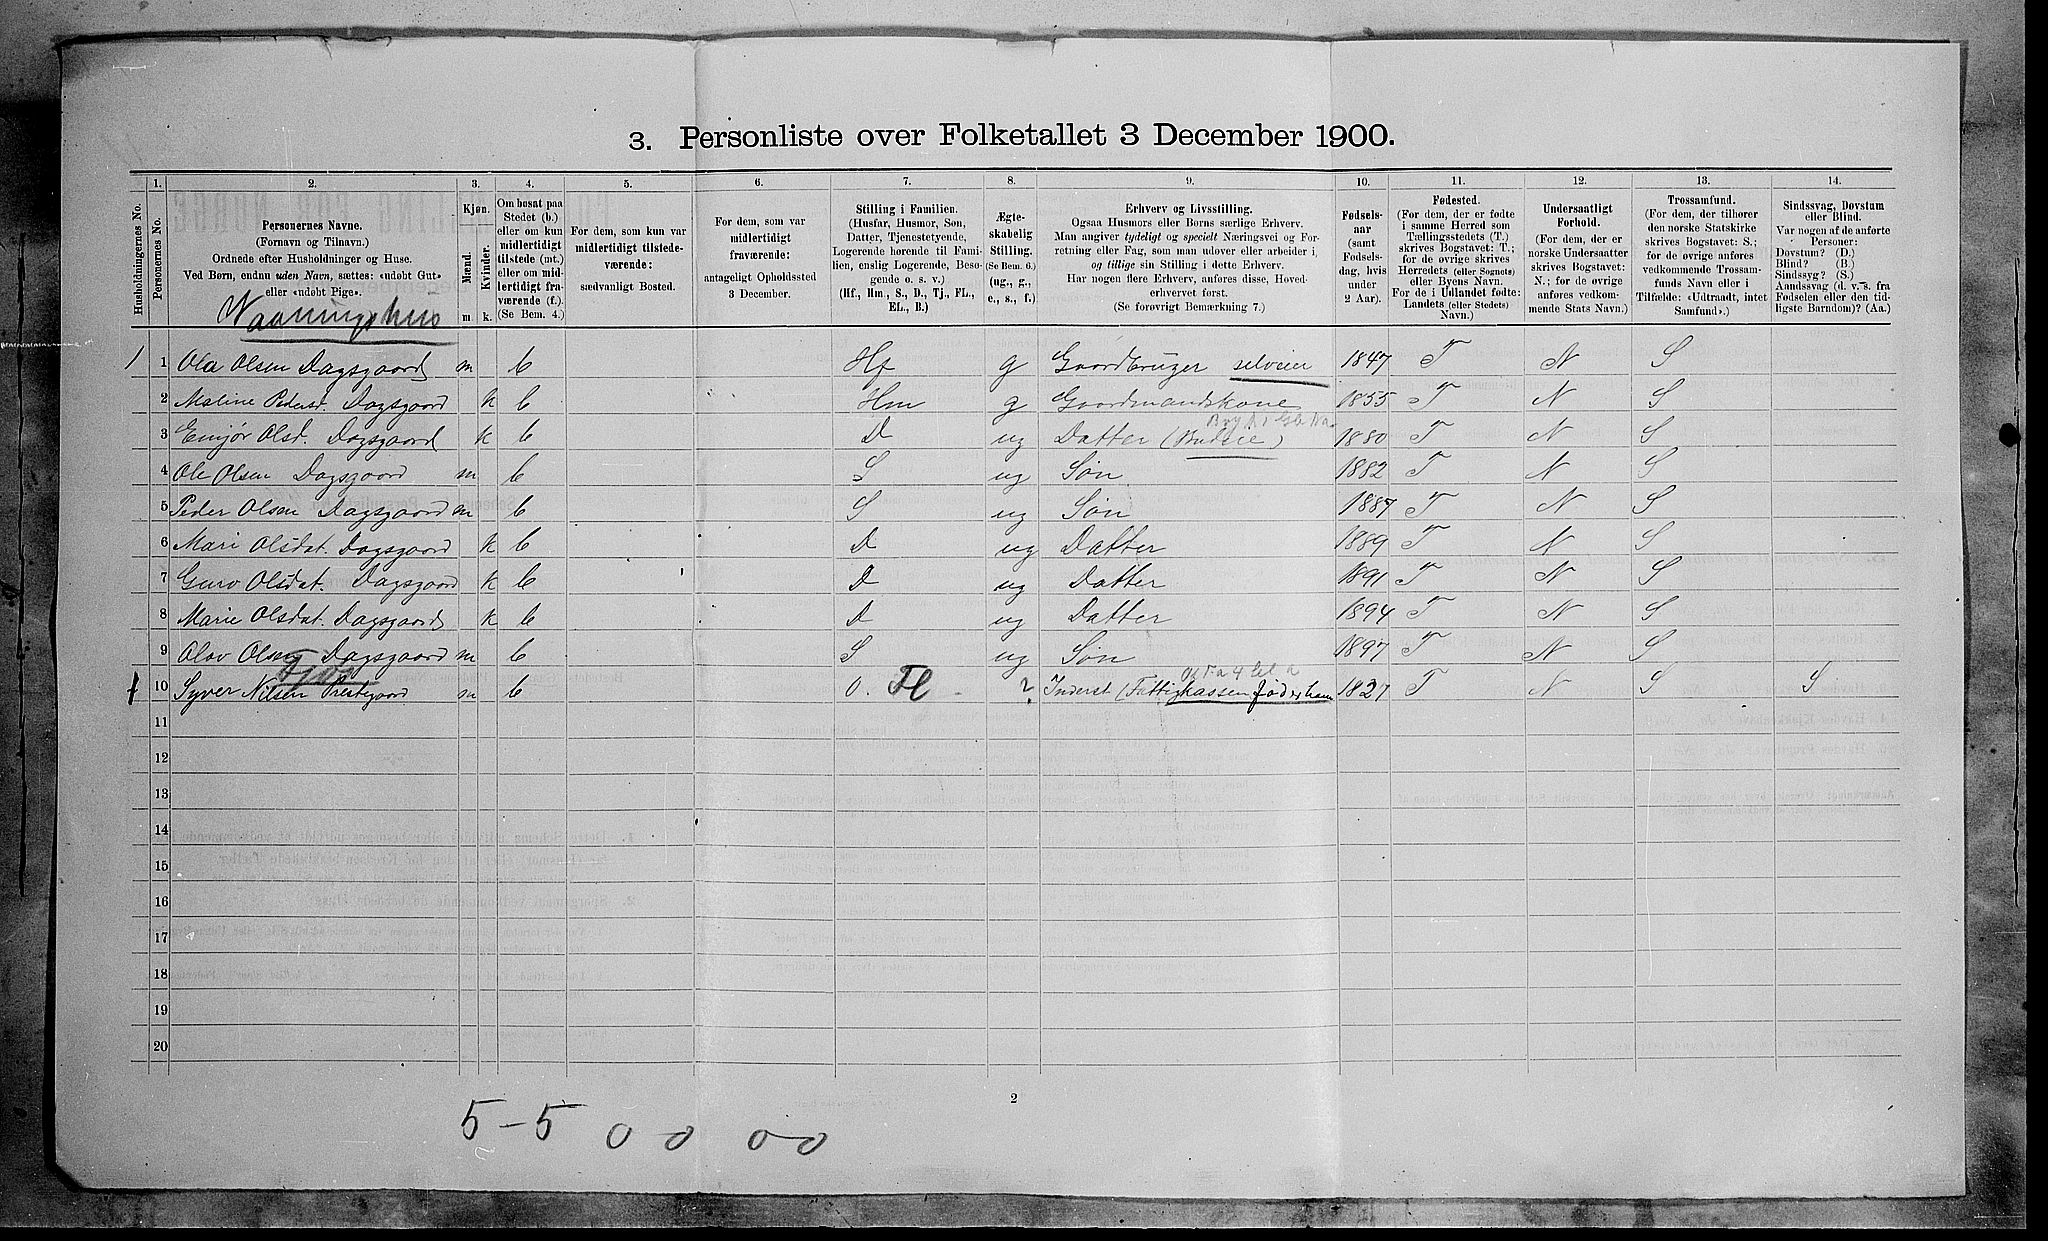 3. Personliste over Folketallet 3 December 1900.
Husholdningernes No.
1. Personernes No.
2. Personernes Navne. (Fornavn og Tilnavn.) Ordnede efter Husholdninger og Huse. Ved Børn, endnu uden Navn, sættes: «udøbt Gut» eller «udøbt Pige».
3. Kjøn. Mænd. m Kvinder. k.
4. Om bosat paa Stedet (b.) eller om kun midlertidigt tilstede (mt.) eller om midlertidigt fraværende (f.). (Se Bem. 4.)
5. For dem, som kun var midlertidigt tilstedeværende: sædvanligt Bosted.
6. For dem, som var midlertidigt fraværende: antageligt Opholdssted 3 December.
7. Stilling i Familien. (Husfar, Husmor, Søn, Datter, Tjenestetyende, Logerende hørende til Familien, enslig Logerende, Besøgende o. s. v.) (Hf., Hm., S., D., Tj., FL., EL., B.)
8. Ægteskabelig Stilling. (Se Bem. 6.) (ug., g., e., s., f.)
9. Erhverv og Livsstilling. Ogsaa Husmors eller Børns særlige Erhverv. Man angiver tydeligt og specielt Næringsvei og Forretning eller Fag, som man udøver eller arbeider i, og tillige sin Stilling i dette Erhverv. Har nogen flere Erhverv, anføres disse, Hovederhvervet først. (Se forøvrigt Bemærkning 7.)
10. Fødselsaar (samt Fødselsdag, hvis under 2 Aar).
11. Fødested. (For dem, der er fødte i samme Herred som Tællingsstedets (T.) skrives Bogstavet: T.; for de øvrige skrives Herredets (eller Sognets) eller Byens Navn. For de i Udlandet fødte: Landets (eller Stedets) Navn.)
12. Undersaatligt Forhold. (For dem, der er norske Undersaatter skrives Bogstavet: N.; for de øvrige anføres vedkommende Stats Navn.)
13. Trossamfund. (For dem, der tilhører den norske Statskirke skrives Bogstavet: S.; for de øvrige anføres vedkommende Trossamfunds Navn eller i Tilfælde: «Udtraadt, intet Samfund».)
14. Sindssvag, Døvstum eller Blind. Var nogen af de anførte Personer: Døvstum? (D.) Blind? (B.) Sindssyg? (S.) Aandssvag (d. v. s. fra Fødselen eller den tidligste Barndom)? (Aa.)
Vaaningshus
1 1 Ola Olsen Dagsgaard m b Hf g Gaardbruger selveier 1847 T N S
2 Maline Pedersd. Dagsgaard k b Hm g Gaardmandskone 1855 T N S
3 Emjør Olsd. Dagsgaard k b D ug Datter (Budeie) 1880 T N S
4 Ole Olsen Dagsgaard m b S ug Søn 1882 T N S
5 Peder Olsen Dagsgaard m b S ug Søn 1887 T N S
6 Mari Olsdat. Dagsgaard k b D ug Datter 1889 T N S
7 Guro Olsdat. Dagsgaard k b D ug Datter 1891 T N S
8 Marie Olsdat. Dagsgaard k b D ug Datter 1894 T N S
9 Olav Olsen Dagsgaard m b S ug Søn 1897 T N S
10 Syver Nilsen Prestegaard m b O. Fl ? Inderst (Fattigkassen 1827 T N S S
11
12
13
14
15
16
17
18
19
20
2
5-5 0 0 0-0